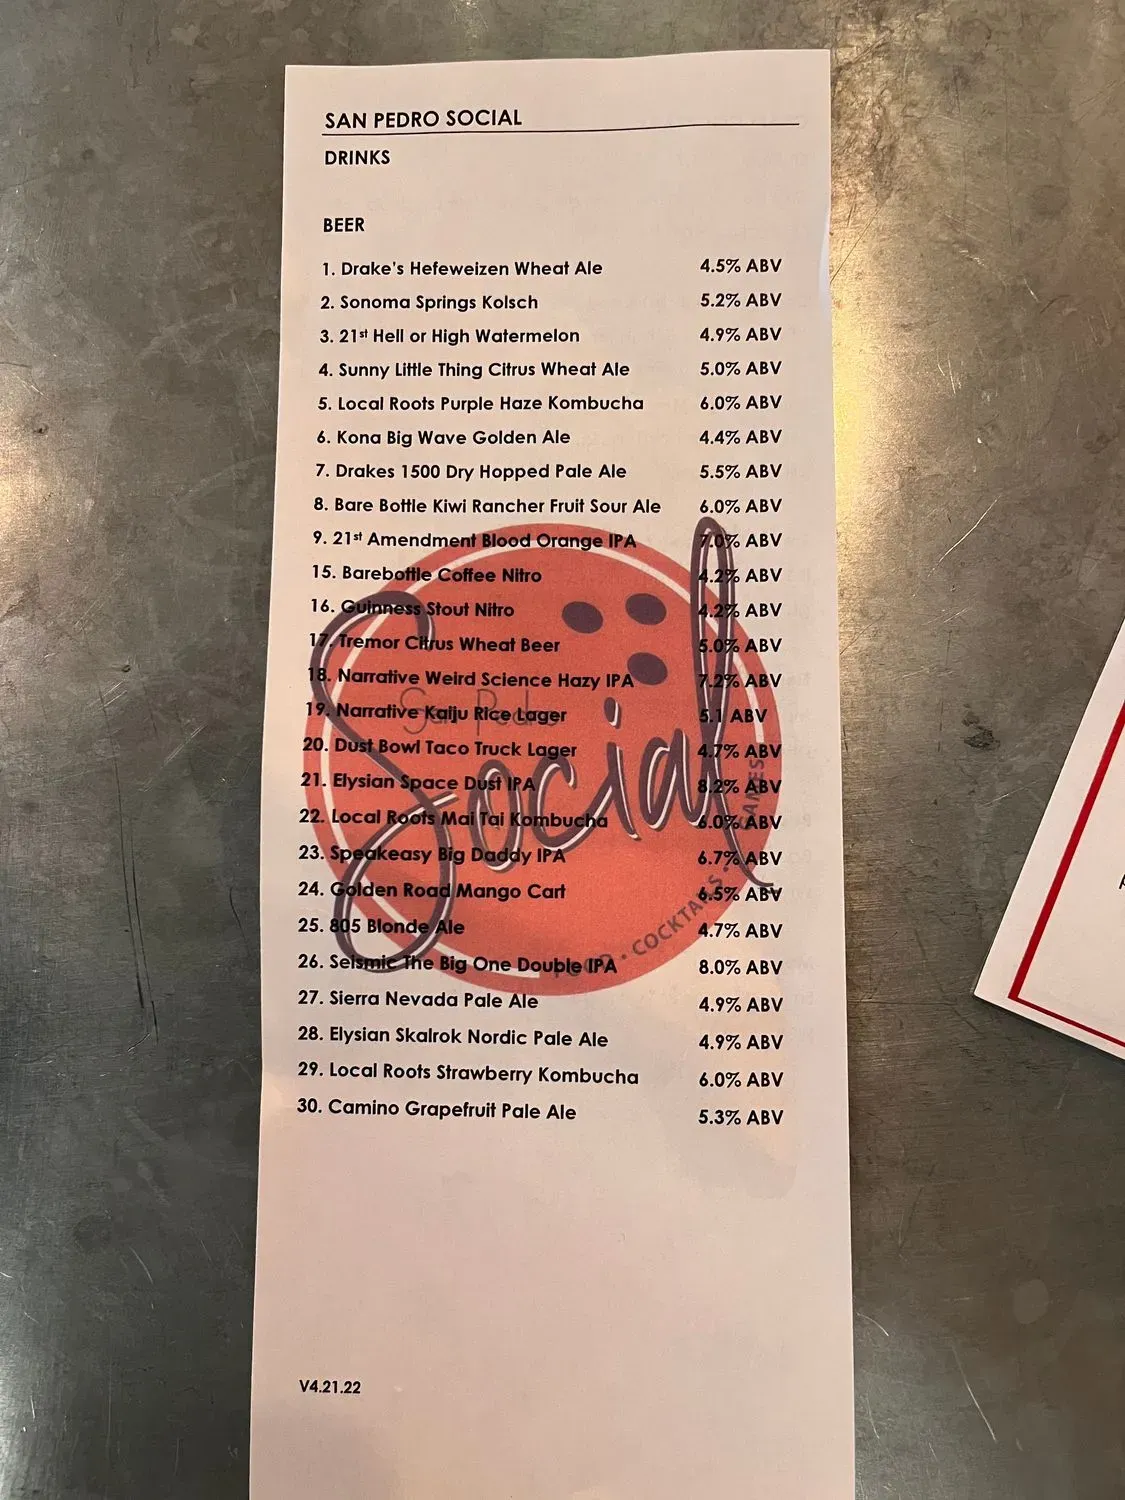 SAN PEDRO SOCIAL
DRINKS
BEER
1. Drake's Hefeweizen Wheat Ale 4.5% ABV
2. Sonoma Springs Kolsch 5.2% ABV
3. 21st Hell or High Watermelon 4.9% ABV
4. Sunny Little Thing Citrus Wheat Ale 5.0% ABV
5. Local Roots Purple Haze Kombucha 6.0% ABV
6. Kona Big Wave Golden Ale 4.4% ABV
7. Drakes 1500 Dry Hopped Pale Ale 5.5% ABV
8. Bare Bottle Kiwi Rancher Fruit Sour Ale 6.0% ABV
9. 21st Amendment Blood Orange IPA 7.0% ABV
15. Barebottle Coffee Nitro 4.2% ABV
16. Guinness Stout Nitro 4.2% ABV
17. Tremor Citrus Wheat Beer 5.0% ABV
18. Narrative Weird Science Hazy IPA 7.2% ABV
19. Narrative Kaiju Rice Lager 5.1 ABV
20. Dust Bowl Taco Truck Lager 4.7% ABV
21. Elysian Space Dust IPA 8.2% ABV
22. Local Roots Mai Tai Kombucha 6.0% ABV
23. Speakeasy Big Daddy IPA 6.7% ABV
24. Golden Road Mango Cart 6.5% ABV
25. 805 Blonde Ale 4.7% ABV
26. Seismic The Big One Double IPA 8.0% ABV
27. Sierra Nevada Pale Ale 4.9% ABV
28. Elysian Skalrok Nordic Pale Ale 4.9% ABV
29. Local Roots Strawberry Kombucha 6.0% ABV
30. Camino Grapefruit Pale Ale 5.3% ABV
San Pedro
Social
FOOD · COCKTAILS · GAMES
V4.21.22